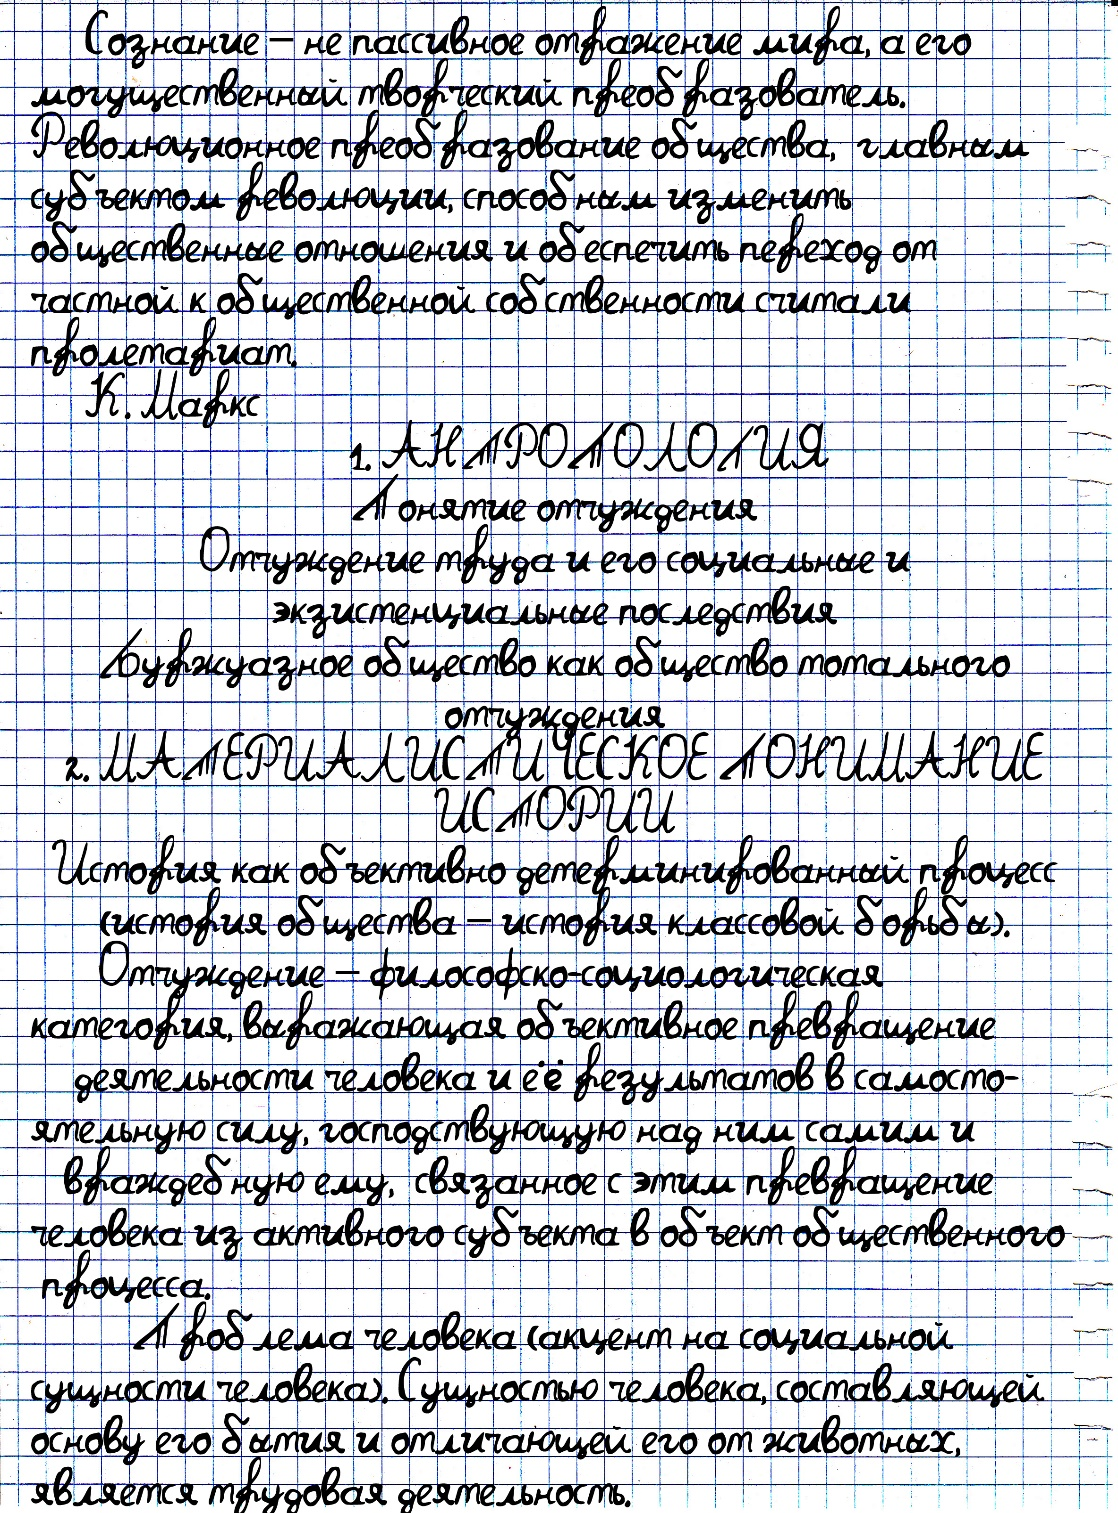 Сознание – не пассивное отражение мира, а его
могущественный творческий преобразователь.
Революционное преобразование общества, главным
субъектом революции, способным изменить
общественные отношения и обеспечить переход от
частной к общественной собственности считали
пролетариат.
К. Маркс
1. АНТРОПОЛОГИЯ
Понятие отчуждения
Отчуждение труда и его социальные и
экзистенциальные последствия
Буржуазное общество как общество тотального
отчуждения
2. МАТЕРИАЛИСТИЧЕСКОЕ ПОНИМАНИЕ
ИСТОРИИ
История как объективно детерминированный процесс
(история общества – история классовой борьбы).
Отчуждение – философско-социологическая
категория, выражающая объективное превращение
деятельности человека и её результатов в самосто-
ятельную силу, господствующую над ним самим и
враждебную ему, связанное с этим превращение
человека из активного субъекта в объект общественного
процесса.
Проблема человека (акцент на социальной
сущности человека). Сущностью человека, составляющей
основу его бытия и отличающей его от животных,
является трудовая деятельность.